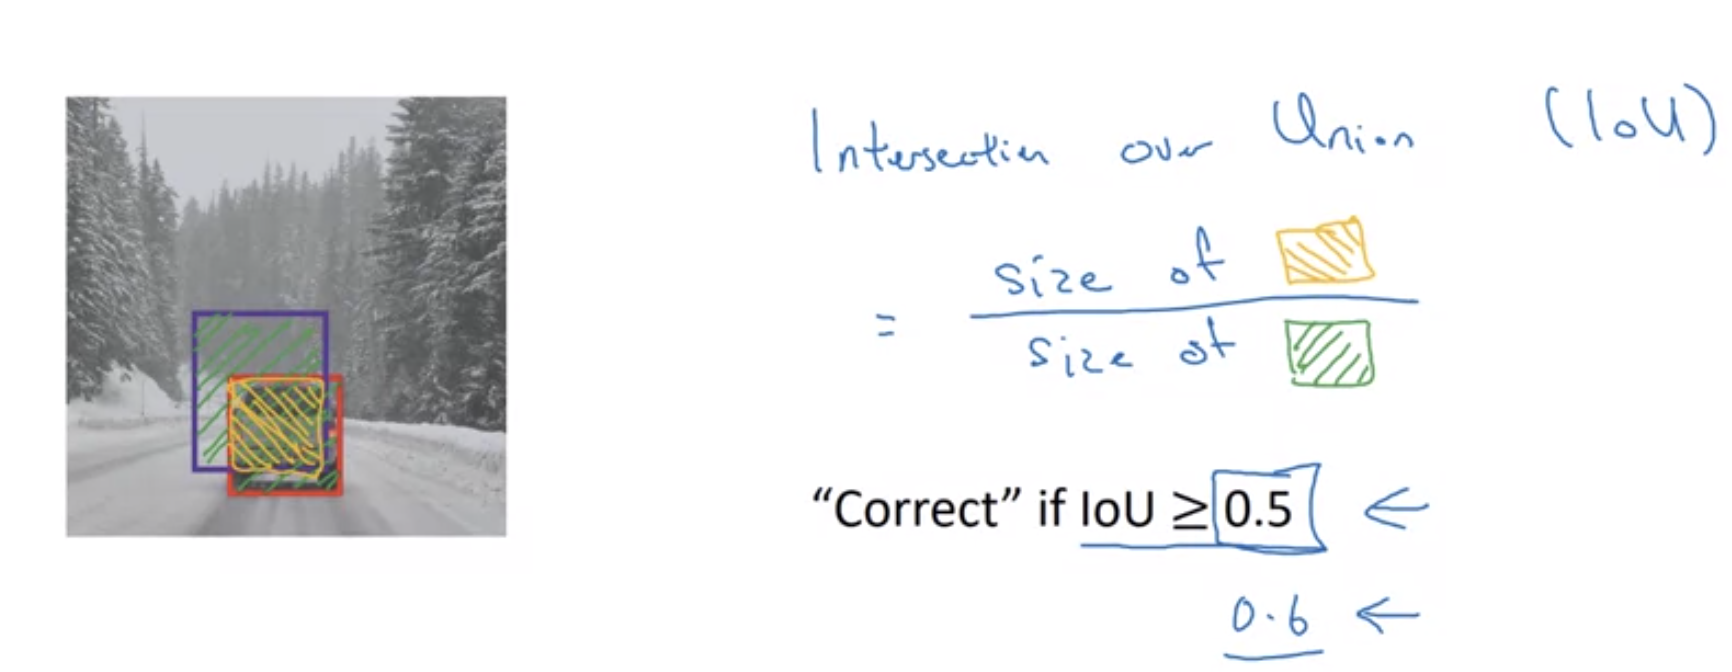 Intersection over Union (IoU)
= size of
size of
“Correct” if IoU ≥ 0.5 ←
0.6 ←